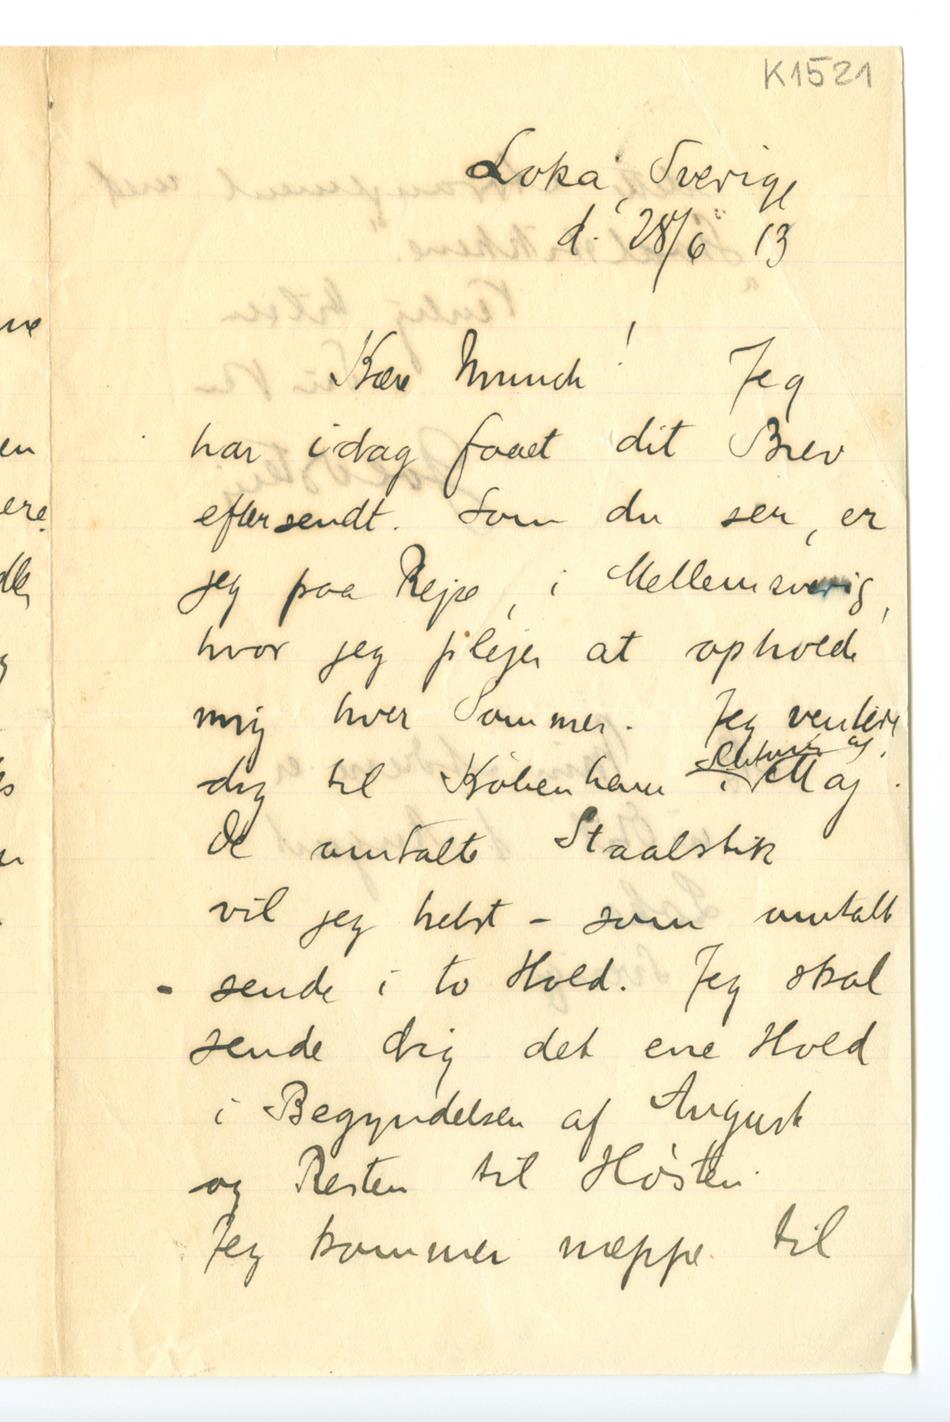 K1521
Loka, Sverige
d. 28/6 13
Kære Munch! Jeg
har idag faaet dit Brev
eftersendt. Som du ser, er
jeg paa Rejse, i Mellemsverig,
hvor jeg plejer at opholde
mig hver Sommer. Jeg ventede
dig til København i Slutningen af Maj.
De omtalte Staalstik
vil jeg helst - som omtalt
- sende i to Hold. Jeg skal
sende dig det ene Hold
i Begyndelsen af August
og Resten til Høsten.
Jeg kommer næppe til